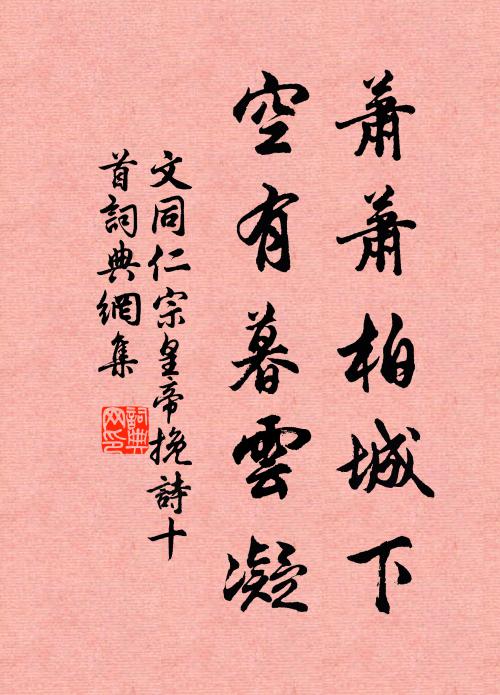 蕭蕭柏城下
空有暮雲凝
文同仁宗皇帝挽詩十
首詞典網集
詞典
网印